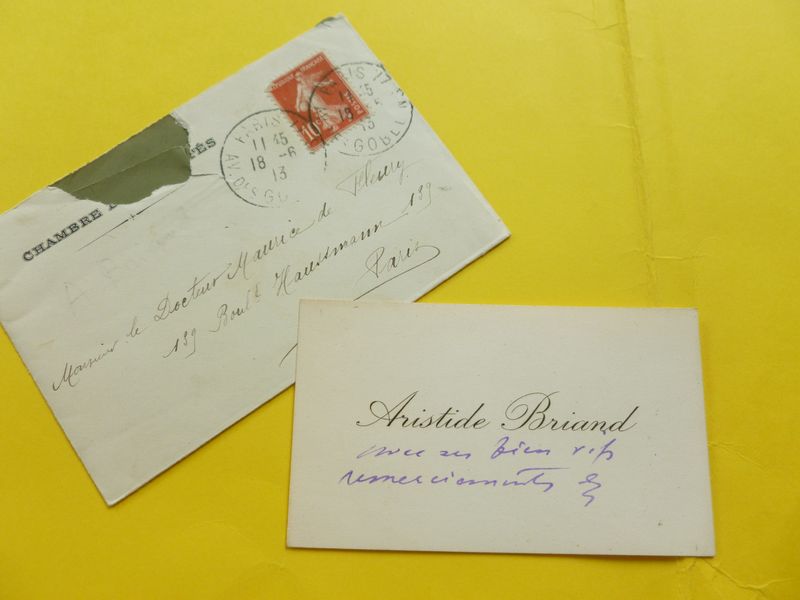 CHAMBRE
TÉS
REPUBLIQUE FRANÇAISE
10
PARIS
11 45
18 -6
13
AV. D'
PARIS 77
18 -6
13
GORLI
Monsieur le Docteur Maurice de Fleury
139 Boulᵈ Haussmann 139
Paris
Aristide Briand
avec ses bien vifs
remerciements